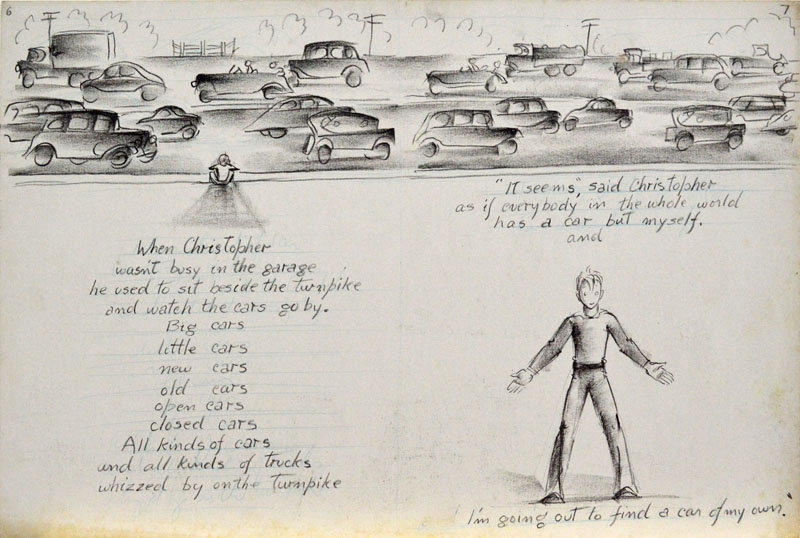 6
When Christopher
wasn't busy in the garage
he used to sit beside the turnpike
and watch the cars go by.
Big cars
little cars
new cars
old cars
open cars
closed cars
All kinds of cars
and all kinds of trucks
whizzed by on the Turnpike
7
"It seems", said Christopher
as if everybody in the whole world
has a car but myself.
and
I'm going out to find a car of my own."